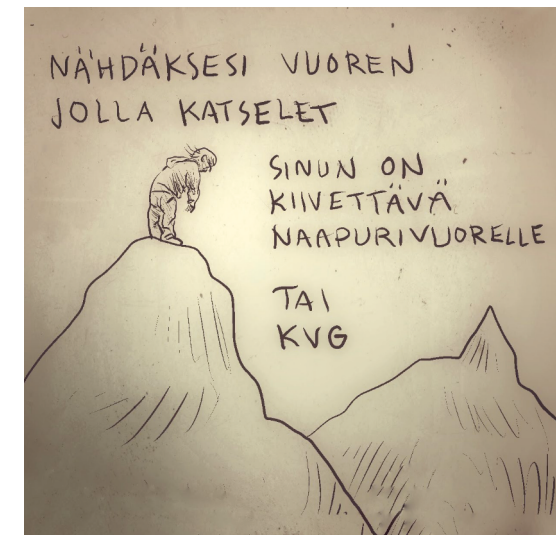 NÄHDÄKSESI VUOREN
JOLLA KATSELET
SINUN ON
KIIVETTÄVÄ
NAAPURIVUORELLE
TAI
KVG